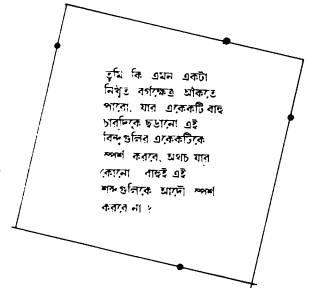 তুমি কি এমন একটা
নিখুঁত বর্গক্ষেত্র আঁকতে
পারো, যার একেকটি বাহু
চারদিকে ছড়ানো এই
বিন্দুগুলির একেকটিকে
স্পর্শ করবে, অথচ যার
কোনো বাহুই এই
শব্দগুলিকে আদৌ স্পর্শ
করবে না ?